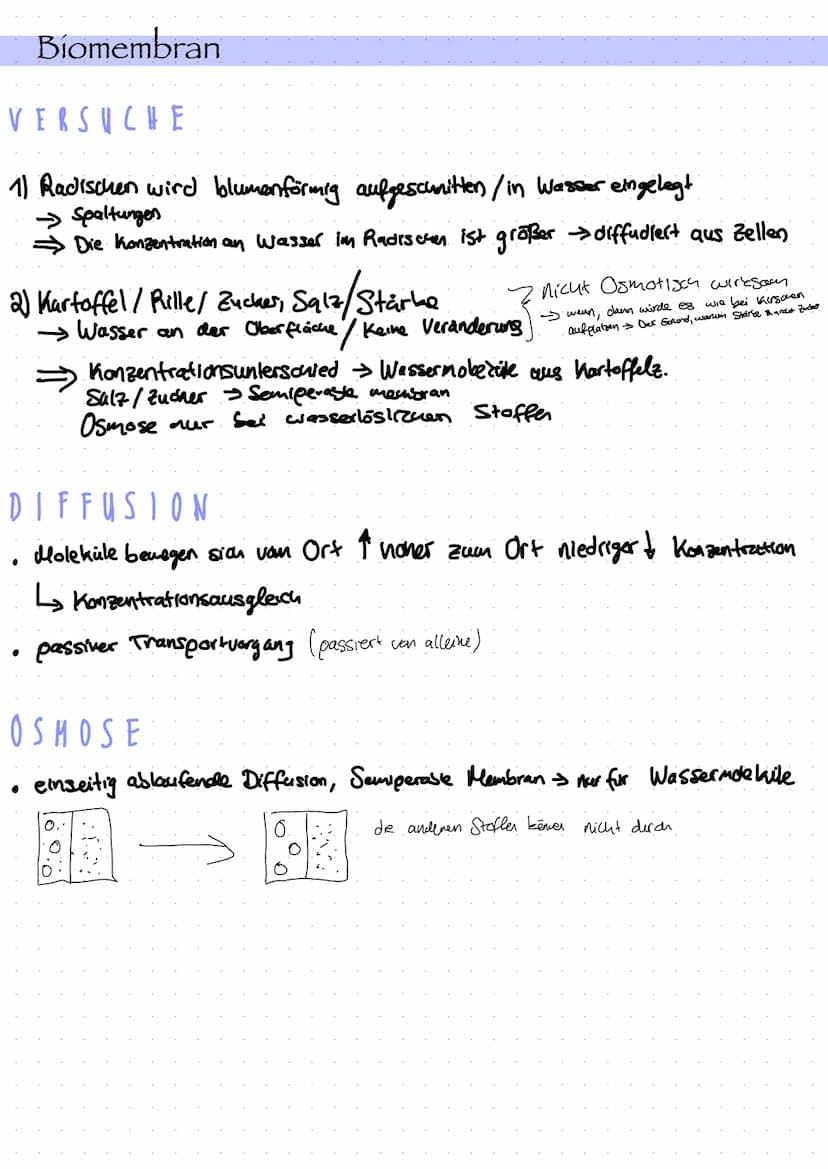 Biomembran
VERSUCHE
1) Radischen wird blumenförmig aufgeschnitten / in Wasser eingelegt
→ Spaltungen
⇒ Die Konzentration an Wasser im Radischen ist größer → diffudiert aus Zellen
2) Kartoffel / Rille / Zucker, Salz / Stärke
→ Wasser an der Oberfläche / Keine Veränderung
→ nicht Osmotisch wirksam
→ wenn, dann würde es wie bei Kirschen
aufplatzen → Der Grund, warum Stärke Zucker
⇒ Konzentrationsunterschied → Wassermoleküle aus Kartoffelz.
Salz / Zucker → Semiperable membran
Osmose nur bei wasserlöslichen Stoffen
DIFFUSION
• Moleküle bewegen sich vom Ort ↑ hoher zum Ort niedriger ↓ Konzentration
↳ Konzentrationsausgleich
• passiver Transportvorgang (passiert von alleine)
OSMOSE
• einseitig ablaufende Diffusion, Semiperable Membran → nur für Wassermoleküle
die anderen Stoffen können nicht durch